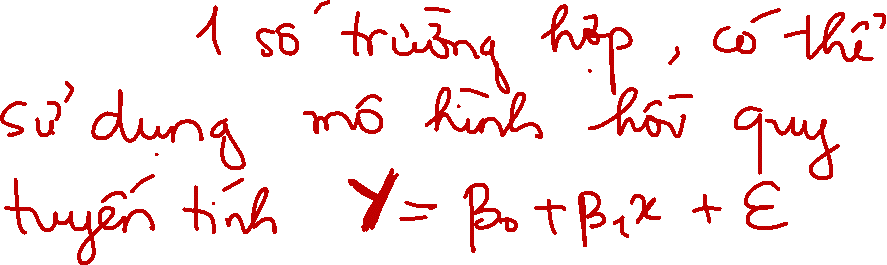 1 số trường hợp, có thể
sử dụng mô hình hồi quy
tuyến tính Y = β₀ + β₁x + ε